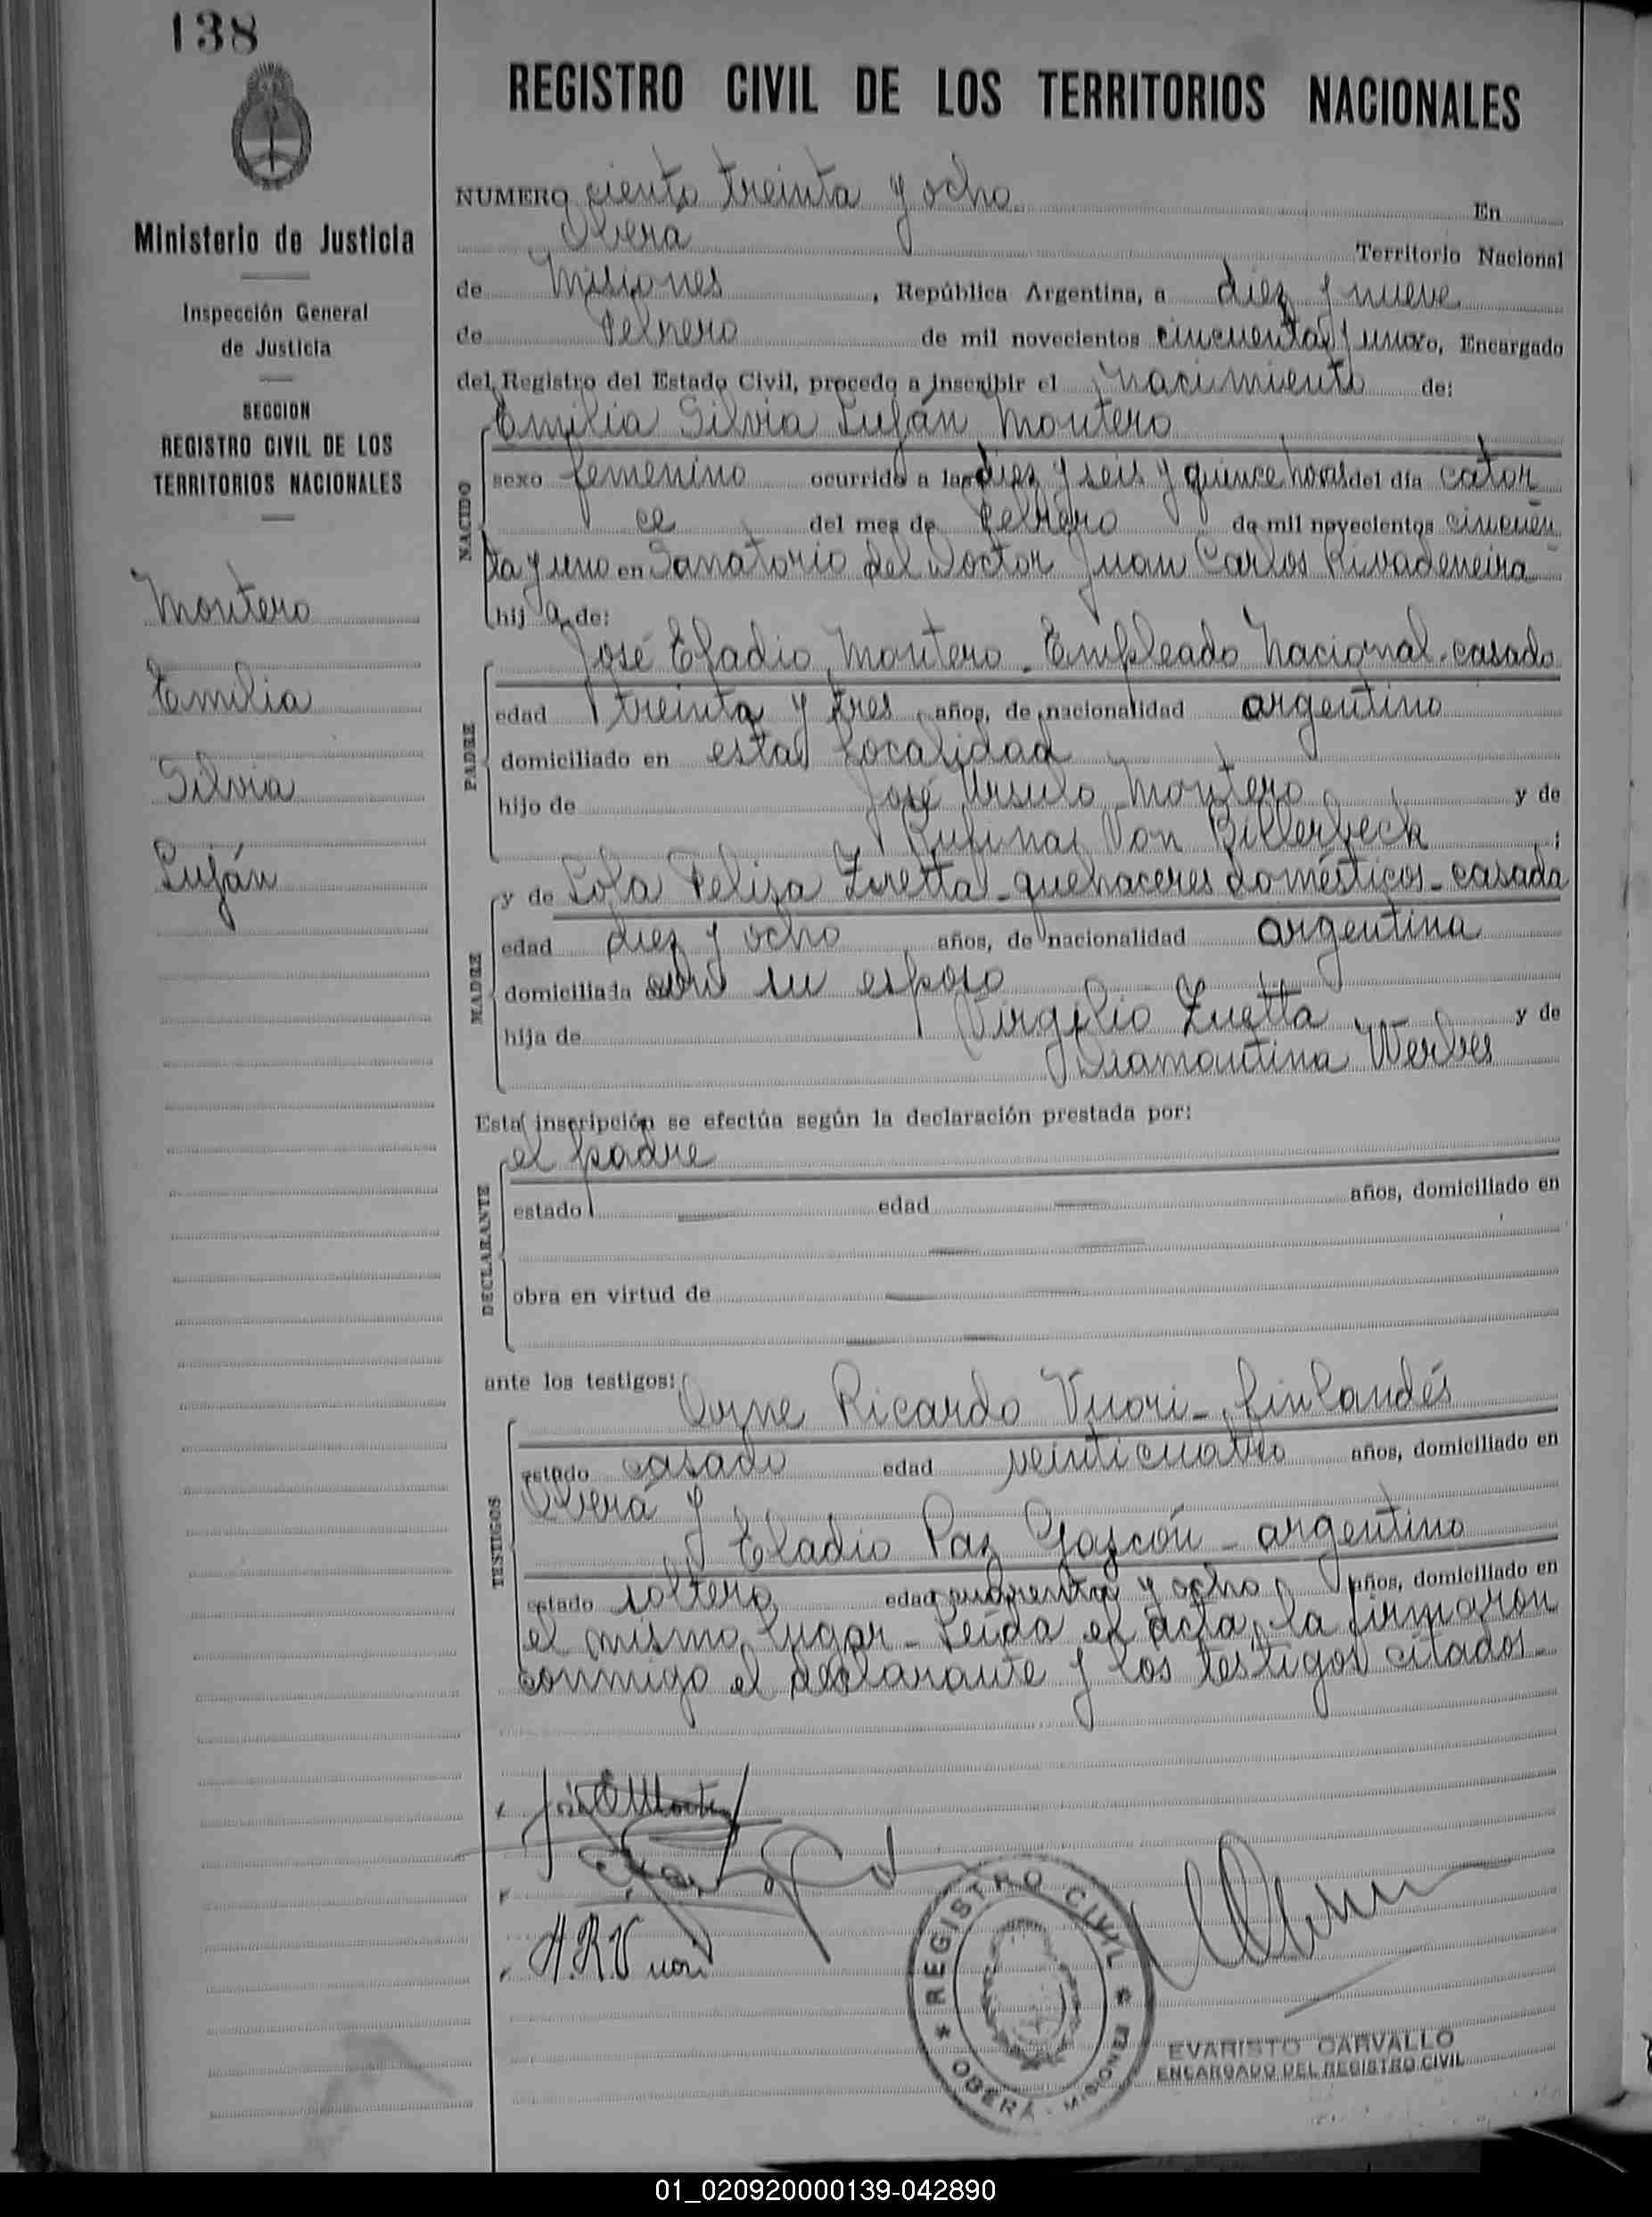 138
REGISTRO CIVIL DE LOS TERRITORIOS NACIONALES
Ministerio de Justicia
Inspección General
de Justicia
SECCION
REGISTRO CIVIL DE LOS
TERRITORIOS NACIONALES
Montero
Emilia
Silvia
Luján
NUMERO ciento treinta y ocho En
Oberá Territorio Nacional
de Misiones, República Argentina, a diez y nueve
de Febrero de mil novecientos cincuenta y uno Yo, Encargado
del Registro del Estado Civil, procedo a inscribir el nacimiento de:
Emilia Silvia Luján Montero
NACIDO
sexo femenino ocurrido a las diez y seis y quince horas del día cator
ce del mes de Febrero de mil novecientos cincuen
ta y uno en Sanatorio del Doctor Juan Carlos Rivadeneira
hija de:
José Eladio Montero - Empleado Nacional - casado
PADRE
edad treinta y tres años, de nacionalidad argentino
domiciliado en esta localidad
hijo de José Ursulo Montero y de
Rufina Von Billerbeck ;
y de Lola Felisa Zuetta - quehaceres domésticos - casada
MADRE
edad diez y ocho años, de nacionalidad argentina
domiciliada con su esposo
hija de Virgilio Zuetta y de
Diamantina Werbes
Esta inscripción se efectúa según la declaración prestada por:
el padre
DECLARANTE
estado — edad — años, domiciliado en
obra en virtud de
ante los testigos:
Ricardo Vuori - finlandés
TESTIGOS
estado casado edad veinticuatro años, domiciliado en
Oberá y
Eladio Paz Gascón - argentino
estado soltero edad cuarenta y ocho años, domiciliado en
el mismo lugar - Leída el acta, la firmaron
conmigo el declarante y los testigos citados -
José E Montero
A.R.Vuori
REGISTRO CIVIL
OBERÁ - MISIONES
EVARISTO CARVALLO
ENCARGADO DEL REGISTRO CIVIL
01_020920000139-042890